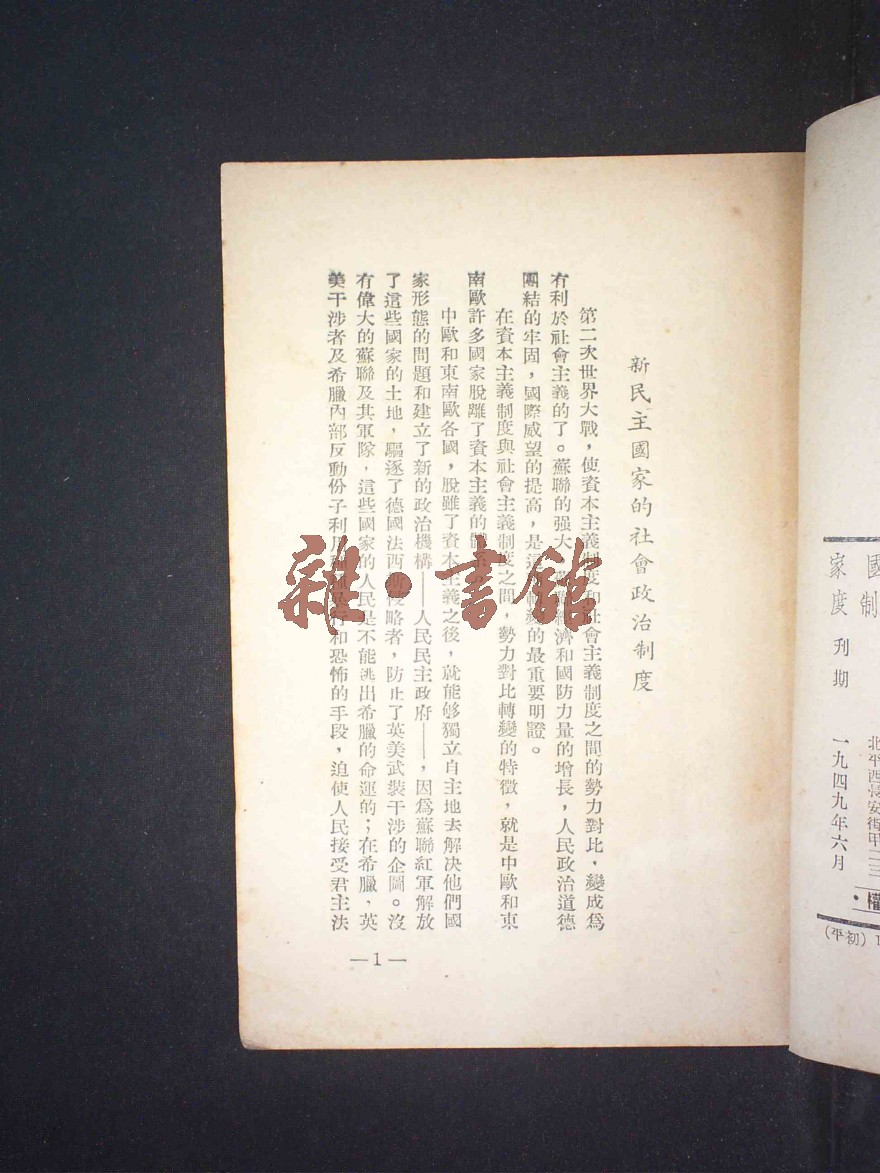 新民主國家的社會政治制度
第二次世界大戰，使資本主義制度和社會主義制度之間的勢力對比，變成爲
有利於社會主義的了。蘇聯的强大，經濟和國防力量的增長，人民政治道德
團結的牢固，國際威望的提高，是這轉變的最重要明證。
在資本主義制度與社會主義制度之間，勢力對比轉變的特徵，就是中歐和東
南歐許多國家脫離了資本主義的體系。
中歐和東南歐各國，脫離了資本主義之後，就能够獨立自主地去解决他們國
家形態的問題和建立了新的政治機構——人民民主政府——，因爲蘇聯紅軍解放
了這些國家的土地，驅逐了德國法西斯侵略者，防止了英美武裝干涉的企圖。沒
有偉大的蘇聯及其軍隊，這些國家的人民是不能逃出希臘的命運的；在希臘，英
美干涉者及希臘內部反動份子利用和恐怖的手段，迫使人民接受君主法
—1—
雜·書館
國
制
家度 刊期 一九四九年六月
北平西長安街甲二三
權
(平初)1